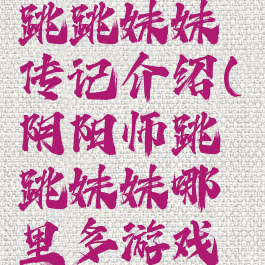 跳跳妹妹
传记介绍(
阴阳师跳
跳妹妹哪
里多游戏